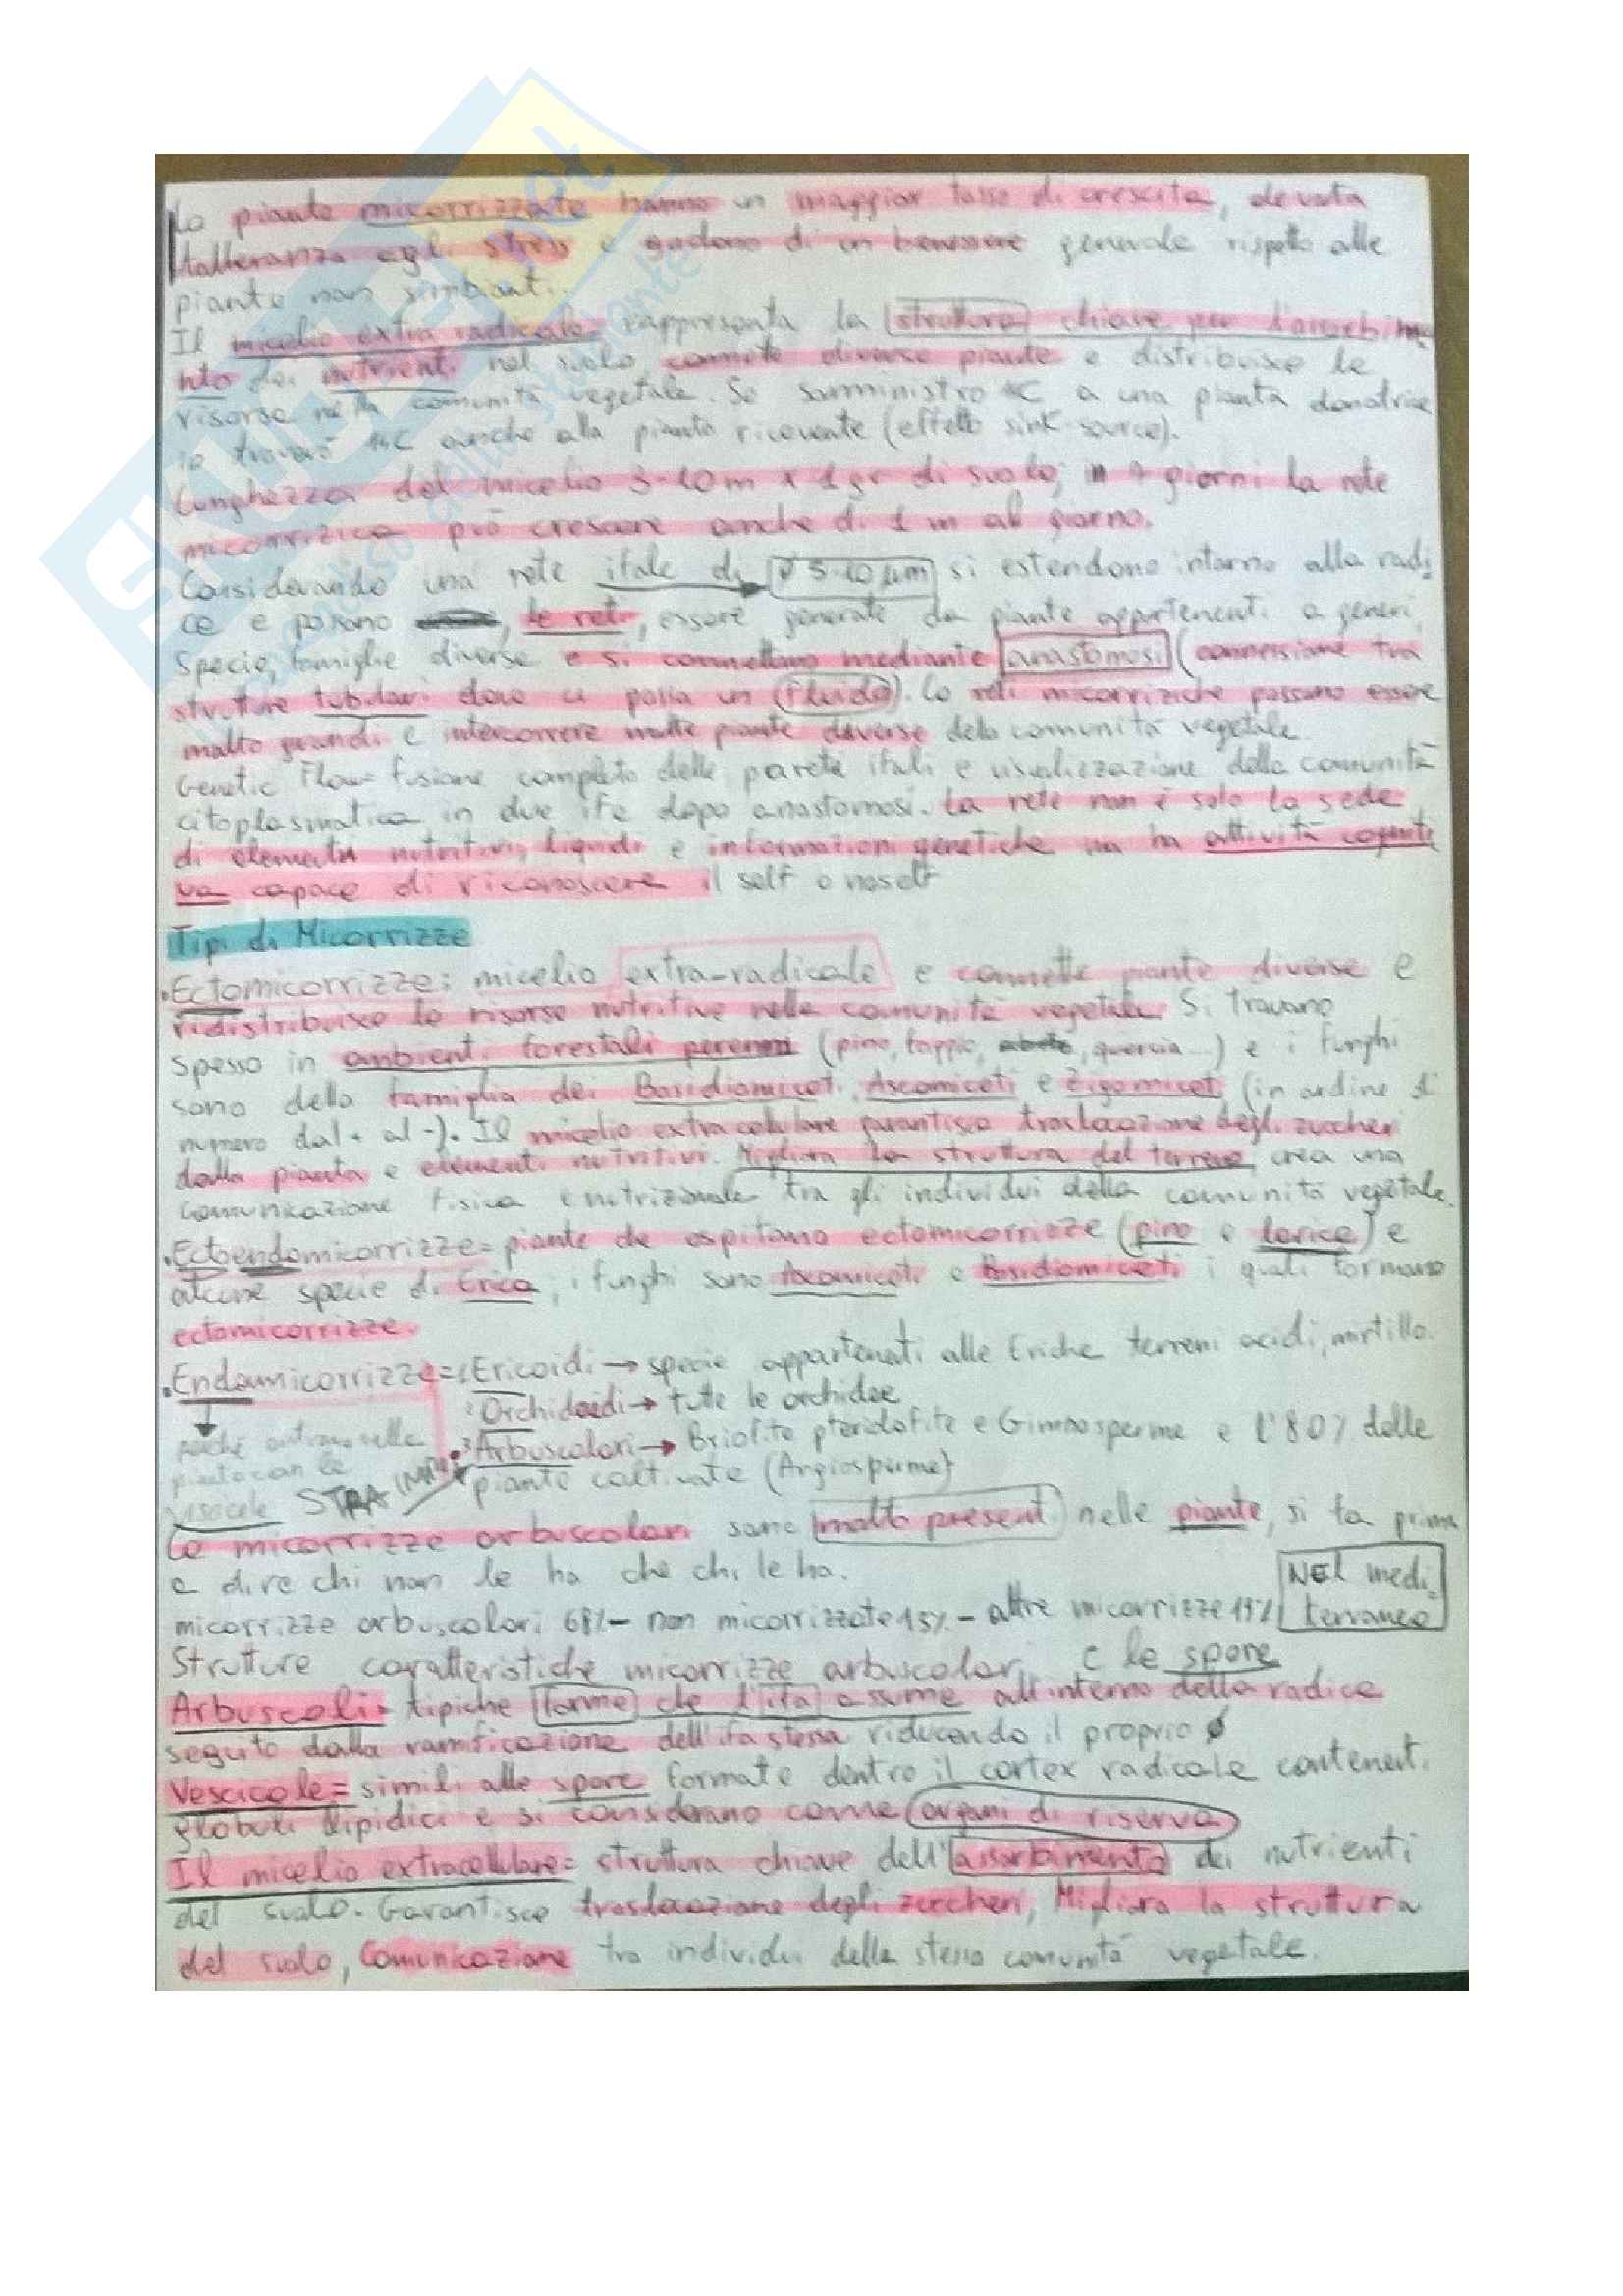 Le piante micorrizzate hanno un maggior tasso di crescita, elevata
tolleranza agli stress e godono di un benessere generale rispetto alle
piante non simbionti.
Il micelio extra radicale rappresenta la struttura chiave per l'assorbime
nto dei nutrienti nel suolo connette diverse piante e distribuisce le
risorse nella comunità vegetale. Se somministro 14C a una pianta donatrice
lo troverò 14C anche alla pianta ricevente (effetto sink-source).
Lunghezza del micelio 3-10m x 1gr di suolo; in 7 giorni la rete
micorrizica può crescere anche di 1 m al giorno.
Considerando una rete ifale di ø 5-10 µm si estendono intorno alla radi
ce e possono , le reti, essere generate da piante appartenenti a generi,
specie, famiglie diverse e si connettono mediante anastomosi (connessione tra
strutture tubulari dove ci passa un fluido). Le reti micorriziche possono essere
molto grandi e interconnere molte piante diverse della comunità vegetale.
Genetic Flow= fusione completa delle pareti ifali e visualizzazione della comunità
citoplasmatica in due ife dopo anastomosi. La rete non è solo la sede
di elementi nutritivi, liquidi e informazioni genetiche ma ha attività cogniti
va capace di riconoscere il self o noself
Tipi di Micorrizze
• Ectomicorrizze: micelio extra-radicale e connette piante diverse e
ridistribuisce le risorse nutritive nella comunità vegetale. Si trovano
spesso in ambienti forestali perenni (pino, faggio, abete, quercia...) e i funghi
sono della famiglia dei Basidiomiceti, Ascomiceti e Zigomiceti (in ordine di
numero dal + al -). Il micelio extracellulare garantisce traslocazione degli zuccheri
dalla pianta e elementi nutritivi. Migliora la struttura del terreno crea una
comunicazione fisica e nutrizionale tra gli individui della comunità vegetale.
• Ectoendomicorrizze= piante che ospitano ectomicorrizze (pino e larice) e
alcune specie di Erica; i funghi sono Ascomiceti e Basidiomiceti i quali formano
ectomicorrizze.
• Endomicorrizze= Ericoidi → specie appartenenti alle Eriche terreni acidi, mirtillo.
Orchidoidi → tutte le orchidee
Arbuscolari → Briofite pteridofite e Gimnosperme e l'80% delle
piante coltivate (Angiosperme)
perché entrano nella
pianta con le
vescicole STRA IMP
Le micorrizze arbuscolari sono molto presenti nelle piante, si fa prima
a dire chi non le ha che chi le ha.
micorrizze arbuscolari 68%- non micorrizzate 15% - altre micorrizze 19% NEL medi
terraneo
Strutture caratteristiche micorrizze arbuscolari e le spore
Arbuscoli= tipiche forme che l'ifa assume all'interno della radice
seguito dalla ramificazione dell'ifa stessa riducendo il proprio ø
Vescicole= simili alle spore formate dentro il cortex radicale contenenti
globuli lipidici e si considerano come organi di riserva
Il micelio extracellulare= struttura chiave dell'assorbimento dei nutrienti
del suolo. Garantisce traslocazione degli zuccheri, Migliora la struttura
del suolo, Comunicazione tra individui della stessa comunità vegetale.